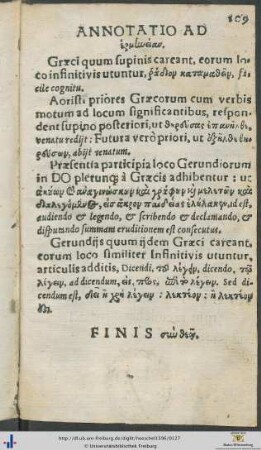 109
ANNOTATIO AD
ἑρμηνείαν.
Græci quum supinis careant, eorum lo-
co infinitivis utuntur, ῥᾴδιον καταμαθεῖν, fa-
cile cognitu.
Aoristi priores Græcorum cum verbis
motum ad locum significantibus, respon-
dent supino posteriori, ut θηρεύσας ἐπανῆλθε,
venatu redijt: Futura verò priori, ut ἐξῆλθε θη-
ρεύσων, abijt venatum.
Præsentia participia loco Gerundiorum
in DO plerunq; à Græcis adhibentur: ut
ἀκούων ἀναγινώσκων καὶ γράφων καὶ μελετῶν καὶ
διαλεγόμενος, εἰς ἄκρον παιδείας ἐλήλακε, id est,
audiendo & legendo, & scribendo & declamando, &
disputando summam eruditionem est consecutus.
Gerundijs quum ijdem Græci careant,
eorum loco similiter Infinitivis utuntur,
articulis additis, Dicendi, τοῦ λέγειν, dicendo, τῷ
λέγειν, ad dicendum, εἰς, πρὸς, τὸ λέγειν. Sed di-
cendum est, δεῖ ἢ χρὴ λέγειν: λεκτέον: ἢ λεκτέον
ἐστί.
FINIS σὺν θεῷ.
http://dl.ub.uni-freiburg.de/diglit/neos/net1598/0127
© Universitätsbibliothek Freiburg